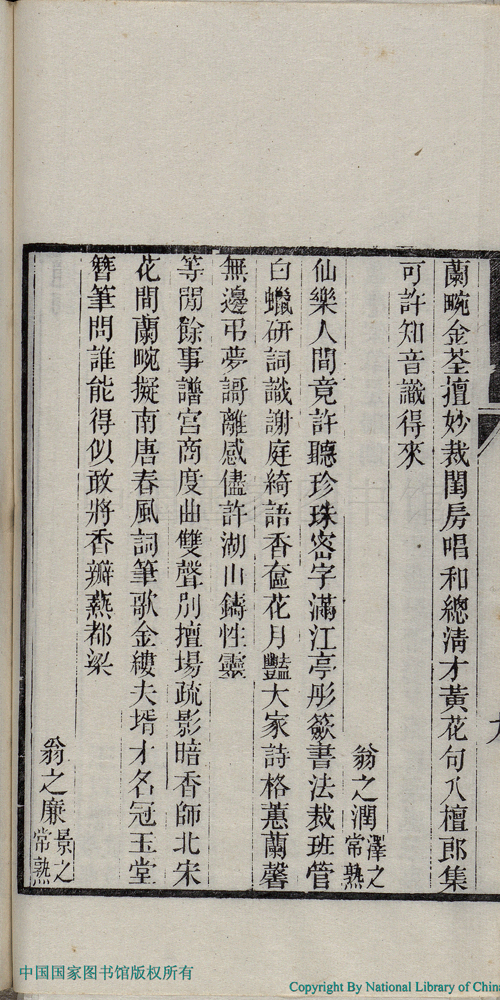 蘭畹金荃擅妙裁閨房唱和總淸才黃花句入檀郎集
可許知音識得來
翁之潤澤之常熟
仙樂人間竟許聽珍珠密字滿江亭彤籨書法裁班管
白蠟硏詞識謝庭綺語香奩花月豔大家詩格蕙蘭馨
無邊弔夢謌離感儘許湖山鑄性靈
等閒餘事譜宮商度曲雙聲別擅場疏影暗香師北宋
花間蘭畹擬南唐春風詞筆歌金縷夫壻才名冠玉堂
簪筆問誰能得似敢將香瓣爇都梁
翁之廉景之常熟
中国国家图书馆版权所有
Copyright By National Library of Chin